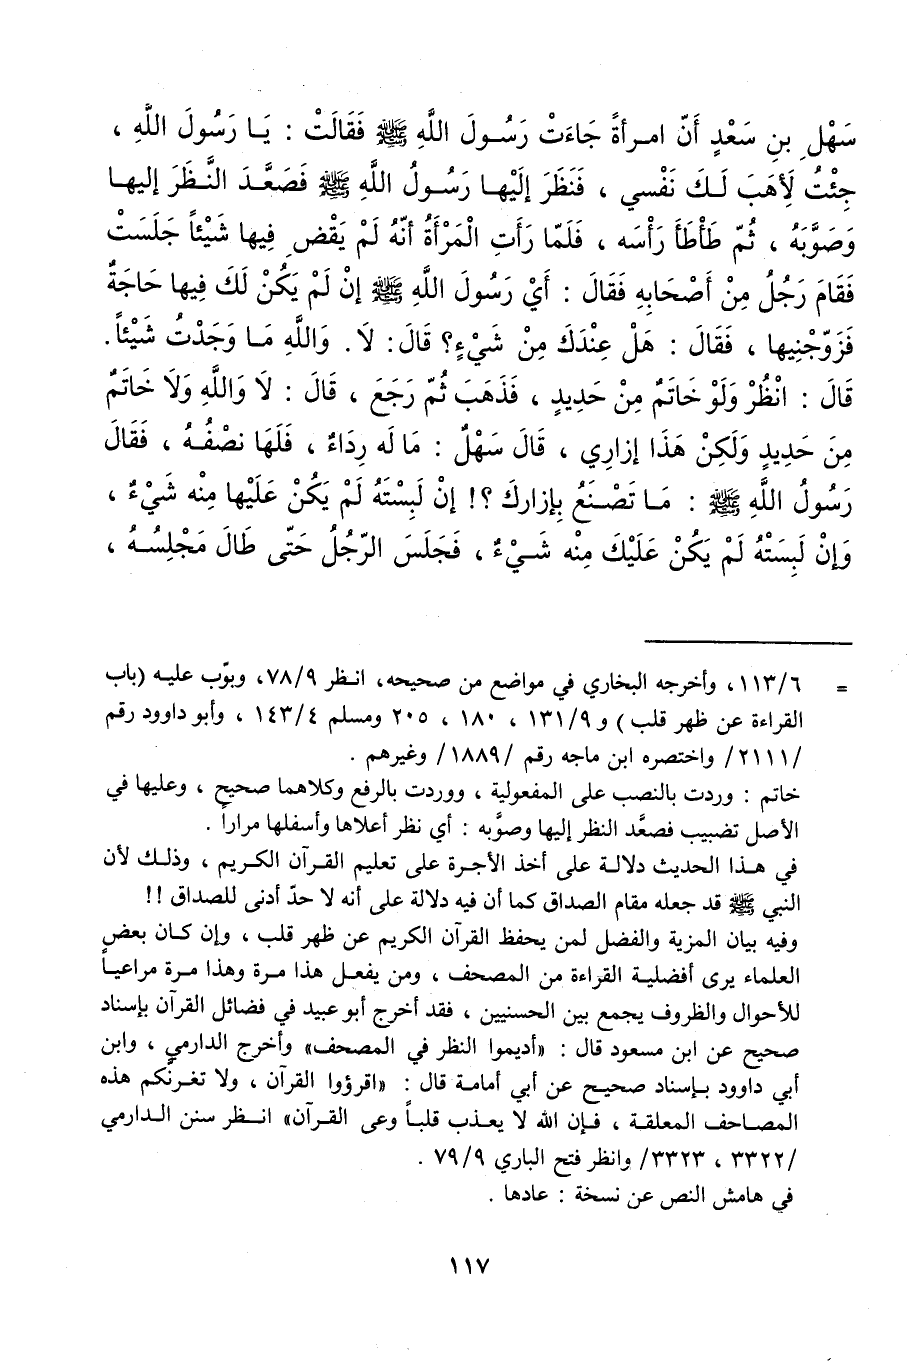 سَهْلِ بنِ سَعْدٍ أَنّ امـرأةً جَاءَتْ رَسُـولَ اللَّهِ ﷺ فَقَالَتْ : يَـا رَسُولَ اللَّهِ ،
جِئْتُ لِأَهَبَ لَـكَ نَفْسي ، فَنَظَرَ إلَيْهـا رَسُـولُ اللَّهِ ﷺ فَصَعَّـدَ النَّـظَرَ إليهـا
وَصَوَّبَهُ ، ثُمّ طَأْطَأَ رَأْسَه ، فَلَمّا رَأَتِ الْمَرْأَةُ أنّهُ لَمْ يَقْضِ فِيها شَيْئاً جَلَسَتْ
فَقَامَ رَجُلُ مِنْ أَصْحَابِهِ فَقَالَ : أَيْ رَسُولَ اللَّهِ ﷺ إنْ لَمْ يَكُنْ لَكَ فِيها حَاجَةٌ
فَزَوِّجْنِيها ، فَقَالَ : هَلْ عِنْدَكَ مِنْ شَيْءٍ؟ قَالَ: لَا. وَاللَّهِ مَـا وَجَدْتُ شَيْئاً.
قَالَ : انْظُرْ وَلَوْ خَاتَمٌ مِنْ حَدِيدٍ ، فَذَهَبَ ثُمّ رَجَعَ ، قَالَ : لَا وَاللَّهِ وَلَا خَاتَمٌ
مِنَ حَدِيدٍ وَلَكِنْ هَذَا إزارِي ، قَالَ سَهْلٌ : مَا لَه رِدَاءٌ ، فَلَهَا نِصْفُـهُ ، فَقَالَ
رَسُولُ اللَّهِ ﷺ : مَـا تَصْـنَعُ بِإزارِكَ ؟! إنْ لَبِسْتَهُ لَمْ يَكُنْ عَلَيْها مِنْه شَيْءٌ ،
وَإنْ لَبِسَتْهُ لَمْ يَكُنْ عَلَيْكَ مِنْه شَـيْءٌ ، فَجَلَسَ الرّجُلُ حَتّى طَالَ مَجْلِسُـهُ ،
= ١١٣/٦ ، وأخرجه البخاري في مواضع من صحيحه، انـظر ٧٨/٩، وبوّب عليـه (باب
القراءة عن ظهر قلب) و ١٣١/٩ ، ١٨٠ ، ٢٠٥ ومسلم ١٤٣/٤ ، وأبو داوود رقم
/٢١١١/ واختصره ابن ماجه رقم /١٨٨٩/ وغيرهم .
خاتم : وردت بالنصب على المفعولية ، ووردت بالرفع وكلاهما صحيح ، وعليها في
الأصل تضبيب فصعَّد النظر إليها وصوَّبه : أي نظر أعلاها وأسفلها مراراً .
في هـذا الحديث دلالـة على أخذ الأجـرة على تعليم القـرآن الكـريم ، وذلـك لأن
النبي ﷺ قد جعله مقام الصداق كما أن فيه دلالة على أنه لا حدّ أدنى للصداق !!
وفيه بيان المزية والفضل لمن يحفظ القرآن الكريم عن ظهر قلب ، وإن كـان بعض
العلماء يرى أفضليـة القراءة من المصحف ، ومن يفعـل هذا مـرة وهذا مـرة مراعيـاً
للأحوال والظروف يجمع بين الحسنيين ، فقد أخرج أبو عبيد في فضائل القرآن بإسناد
صحيح عن ابن مسعود قال : «أديموا النظر في المصحف» وأخرج الدارمي ، وابن
أبي داوود بـإسناد صحيح عن أبي أمامـة قال : «اقرؤوا القرآن ، ولا تغرنّكم هذه
المصاحف المعلقـة ، فـإن الله لا يعـذب قلبـاً وعى القـرآن» انـظر سنن الـدارمي
/٣٣٢٢ ، ٣٣٢٣/ وانظر فتح الباري ٧٩/٩ .
في هامش النص عن نسخة : عادها .
١١٧